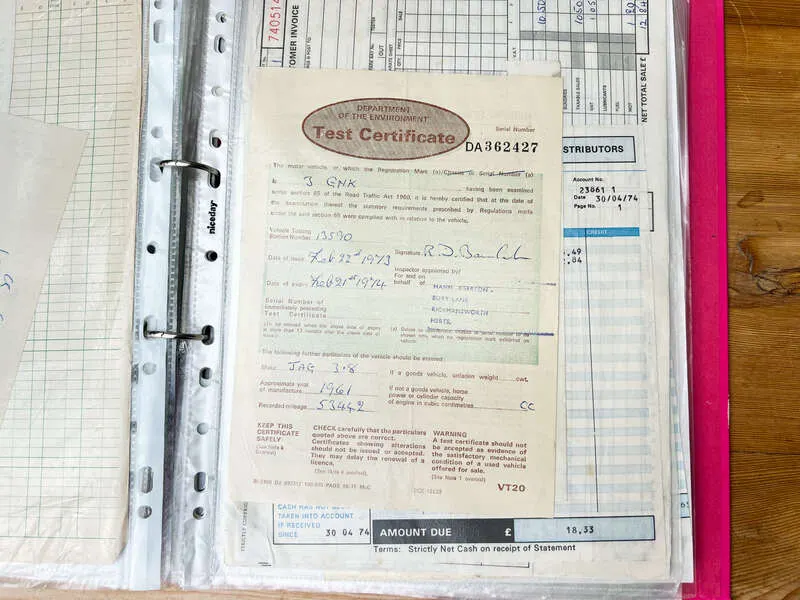 740514
CUSTOMER INVOICE
10.50
1050
105
1.80
12.84
V.A.T.
SUNDRIES
TAXABLE SALES
VAT
LUBRICANTS
FUEL
MOT
NET TOTAL SALE £
niceday
DEPARTMENT
OF THE ENVIRONMENT
Test Certificate
Serial Number
DA 362427
The motor vehicle, of which the Registration Mark (or Chassis or Serial Number (a)
is 3 GNK having been examined
under section 65 of the Road Traffic Act 1960, it is hereby certified that at the date of
the examination thereof the statutory requirements prescribed by Regulations made
under the said section 65 were complied with in relation to the vehicle.
Vehicle Testing
Station Number 13590
Date of issue Feb 22nd 1973
Signature
Date of expiry Feb 21st 1974
Inspector appointed by/
For and on
behalf of
BURY LANE
RICKMANSWORTH
HERTS
Serial Number of
immediately preceding
Test Certificate
The following further particulars of the vehicle should be
Make JAG 3.8
If a goods vehicle, unladen weight cwt.
Approximate year
of manufacture 1961
If not a goods vehicle, horse
power or cylinder capacity
of engine in cubic centimetres CC
Recorded mileage 53442
KEEP THIS
CERTIFICATE
SAFELY
(See Note 4
Overleaf)
CHECK carefully that the particulars
quoted above are correct.
Certificates showing alterations
should not be issued or accepted.
They may delay the renewal of a
licence.
(See Note 6 overleaf).
WARNING
A test certificate should not
be accepted as evidence of
the satisfactory mechanical
condition of a used vehicle
offered for sale.
(See Note 1 overleaf)
VT20
STRIBUTORS
Account No.
23061 1
Date 30/04/74
Page No. 1
CREDIT
.49
.84
CASH HAS NOT BEEN
TAKEN INTO ACCOUNT
IF RECEIVED
SINCE 30 04 74
AMOUNT DUE £ 18.33
Terms: Strictly Net Cash on receipt of Statement